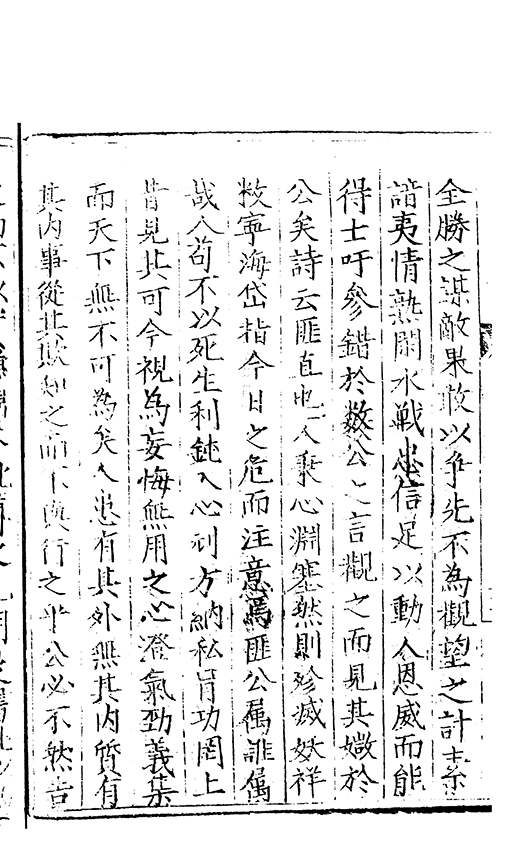 全勝之謀敵果敢以爭先不為觀望之計素
諳夷情熟閑水戰忠信足以動人恩威而能
得士吁參錯於數公之言觀之而見其媺於
公矣詩云匪直也人秉心淵塞然則殄滅妖祥
敉寧海岱指今日之危而注意焉匪公屬誰屬
哉人苟不以死生利鈍入心刓方納私冒功罔上
昔見其可今視為妄悔無用之心澄氣勁義集
而天下無不可為矣人患有其外無其內質有
其內事從其欺知之而下與行之乎公必不然吉